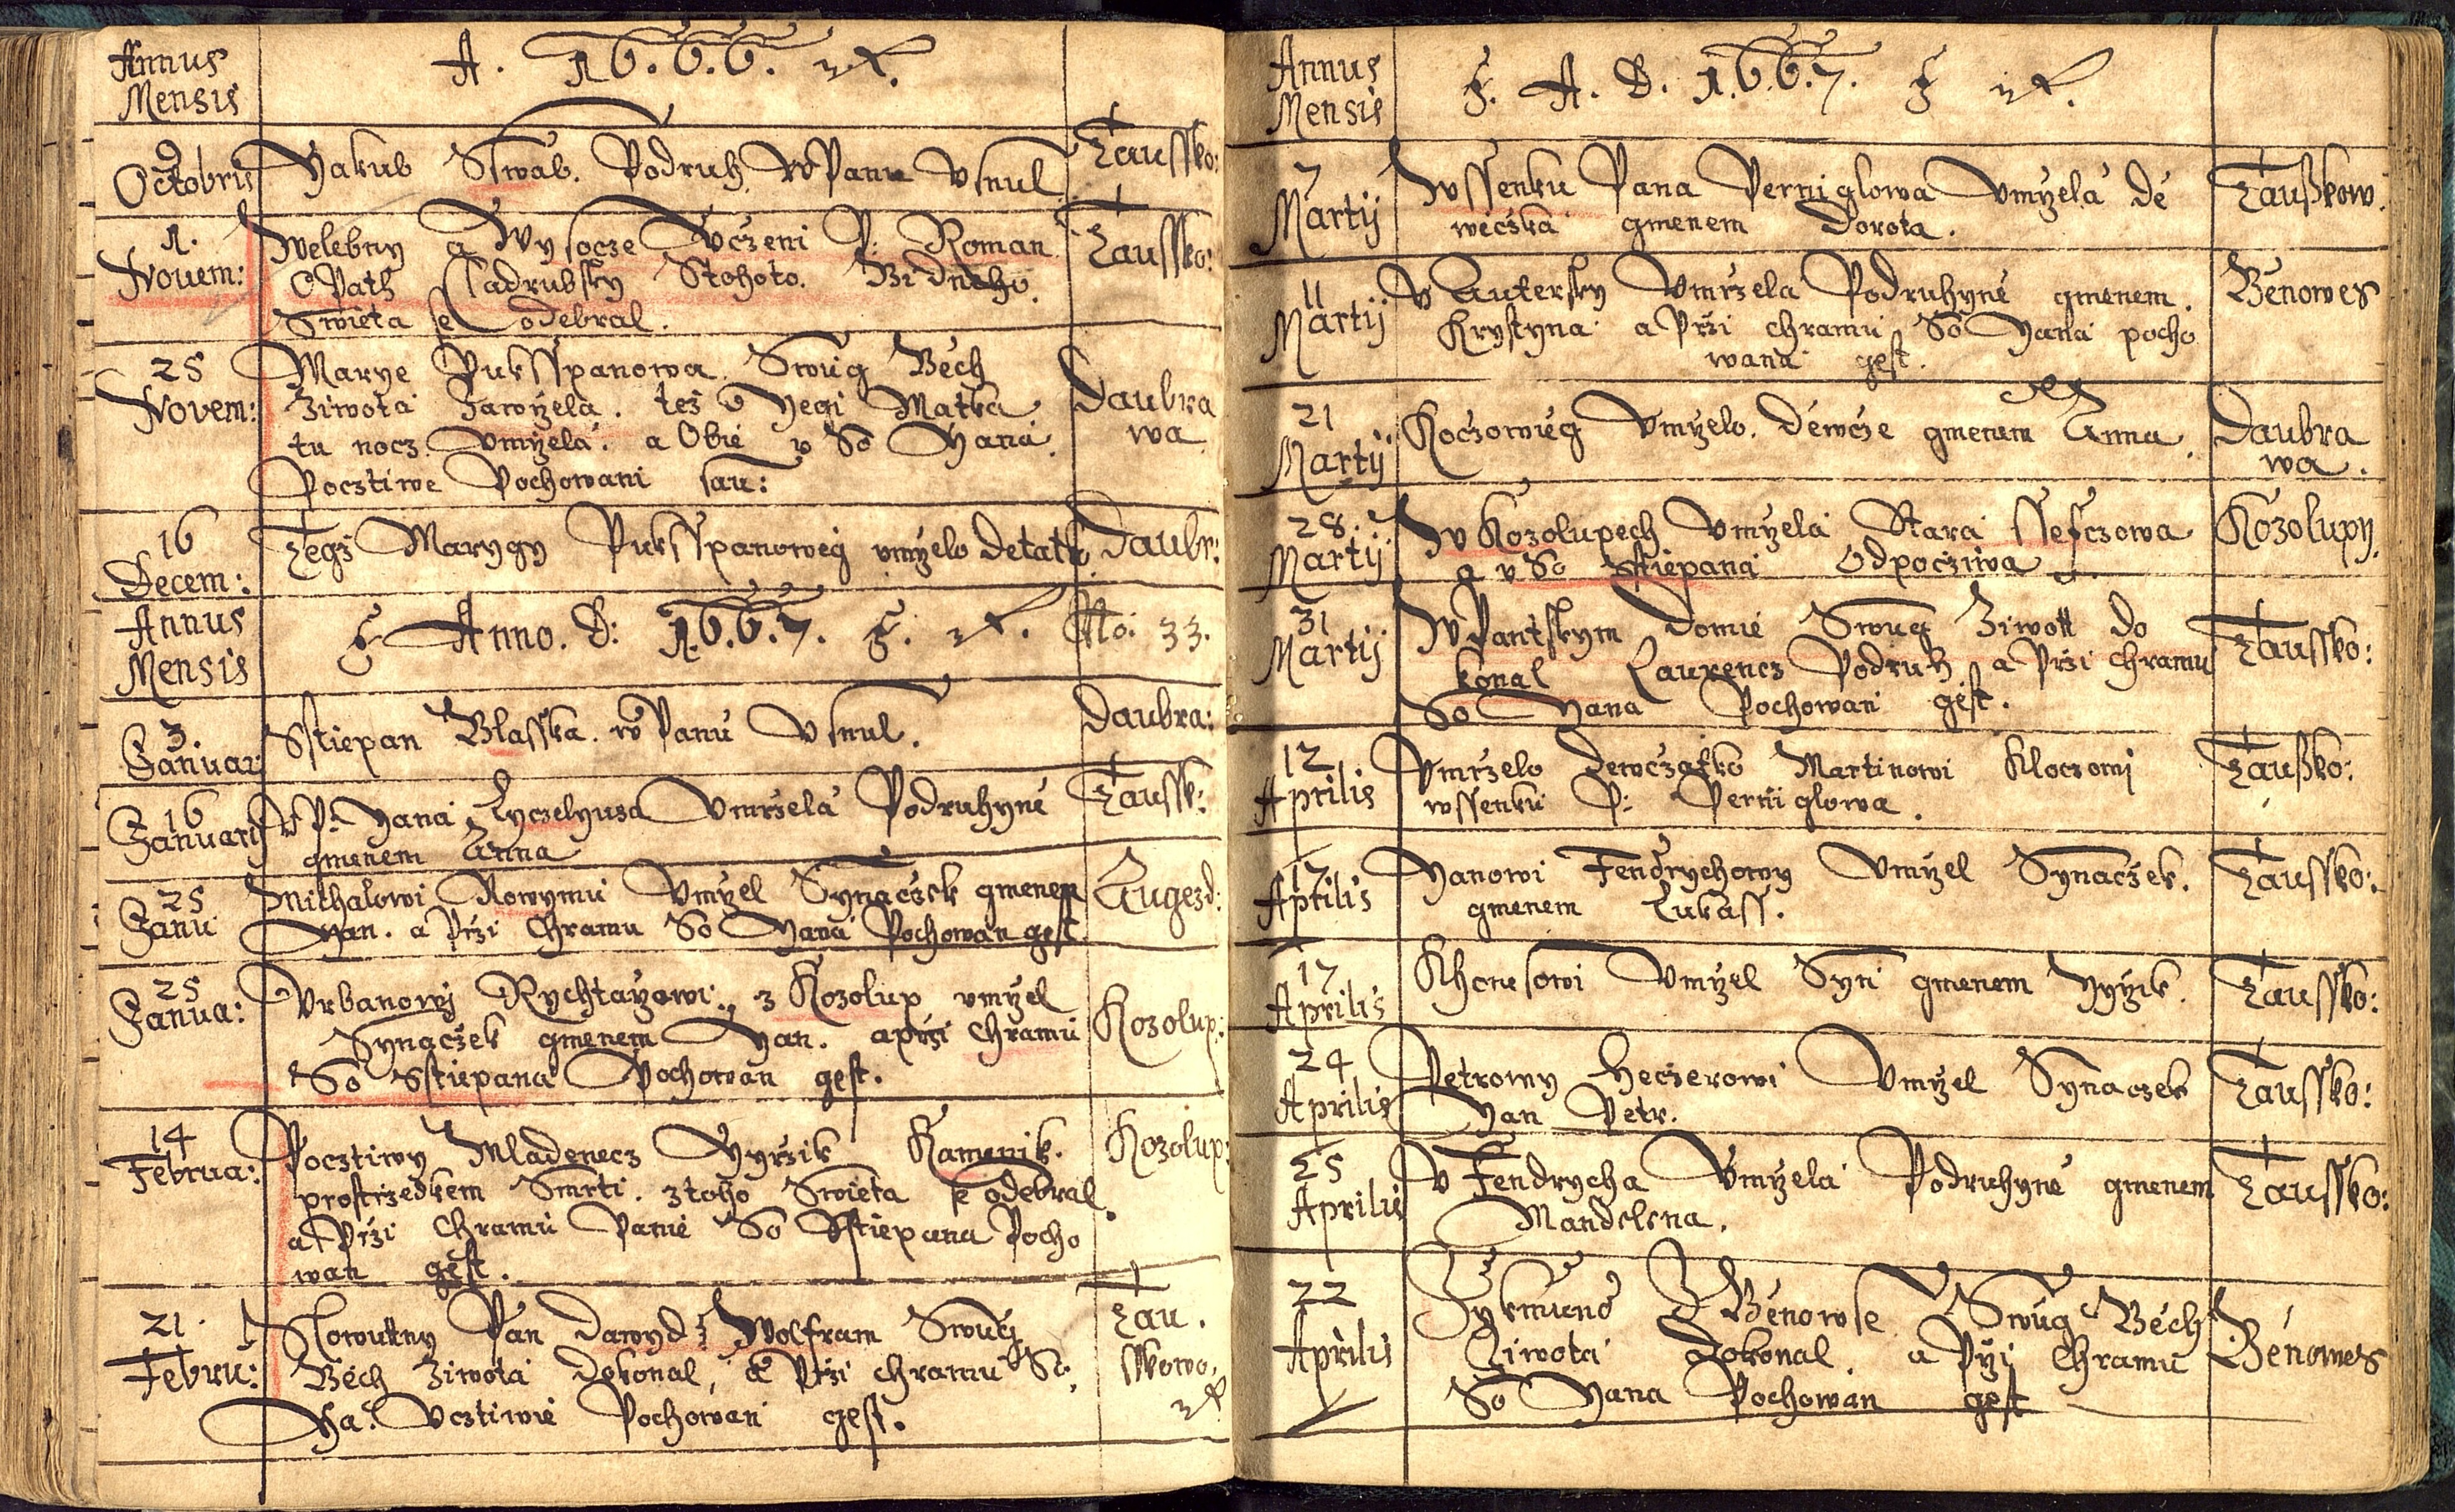 Annus
Mensis
A. 1666. etc.
9
Octobris
Yakub Sswab. Podruh. W Panu Usnul
Taussko:
1.
Novem:
Welebny a Wysocze Uczeni P: Roman
Opath Cladrubsky Stohoto. Bidneho.
Swieta se odebral.
Taussko:
25
Novem:
Marye Puksspanowa Swug Bech
Ziwota Zawrzela. tez v Negi Matka
tu nocz. Umrzela. a Obie v So Yana.
Pocztiwe Pochowani sau:
Daubra
wa
16
Decem:
Tegz Marygy Puksspanoweg umrzelo detatko
Daubr:
Annus
Mensis
Anno. D: 1667. etc.
No: 33.
3.
Januar
Sstiepan Blasska. w Panu Usnul.
Daubra:
16
Januarij
U P: Yana Lyczelyusa Umrzela Podruhyne
gmenem Anna
Taussk:
25
Janu
Mithalowi Nowymu Umrzel Synaczek gmenem
Yan. a Przi Chramu So Yana Pochowan gest
Augezd:
25
Janua:
Urbanowj Rychtarzowi. z Kozolup umrzel
Synaczek gmenem Yan. a przi Chramu
So Sstiepana Pochowan gest.
Kozolup:
14
Februa:
Pocztiwy Mladenecz Yyrzik Kamenik.
prostrzedkem Smrti. ztoho Swieta se odebral
a Przi Chramu Panie So Sstiepana Pocho
wan gest.
Kozolup:
21.
Febru:
Slowutny Pan Dawyd Wolfram Swug
Bech Ziwota Dokonal, a Przi chramu So.
Ya: Ucztiwie Pochowan gest.
Tau.
sskowo.
etc.
Annus
Mensis
A. D. 1667. etc.
7
Martij
W ssenku Pana Perniglowa Umrzela de
weczka gmenem Dorota.
Taußkow.
11
Martij
V Autersky Umrzela Podruhyne gmenem.
Krystyna a Przi chramu So Yana pocho
wana gest.
Benowes
21
Martij
Koczoweg Umrzelo. dewcze gmenem Anna.
Daubra
wa.
28.
Martij
W Kozolupech Umrzela Stara Ssefczowa
a v So Sstiepana Odpocziwa
Kozolupy.
31
Martij
W Pantskym Domie Swug Ziwott do
konal Laurencz Podruh a Przi chramu
So Yana Pochowan gest.
Taussko:
12
Aprilis
Umrzelo Dewczatko Martinowi Kloczowi
w ssenku P: Perniglowa.
Taußko:
17
Aprilis
Yanowi Fendrychowy Umrzel Synaczek.
gmenem Lukass.
Taussko:
17
Aprilis
Khonesowi Umrzel Syn gmenem Yyrzik.
Taussko:
24
Aprilis
Petrowy Heczerowi Umrzel Synaczek
Yan Petr.
Taussko:
25
Aprilis
V Fendrycha Umrzela Podruhyne gmenem
Mandelena.
Taussko:
22
Aprilis
Zykmund Z Benowse Swug Bech
Ziwota Dokonal. a Przi Chramu
So Yana Pochowan gest
Benowes